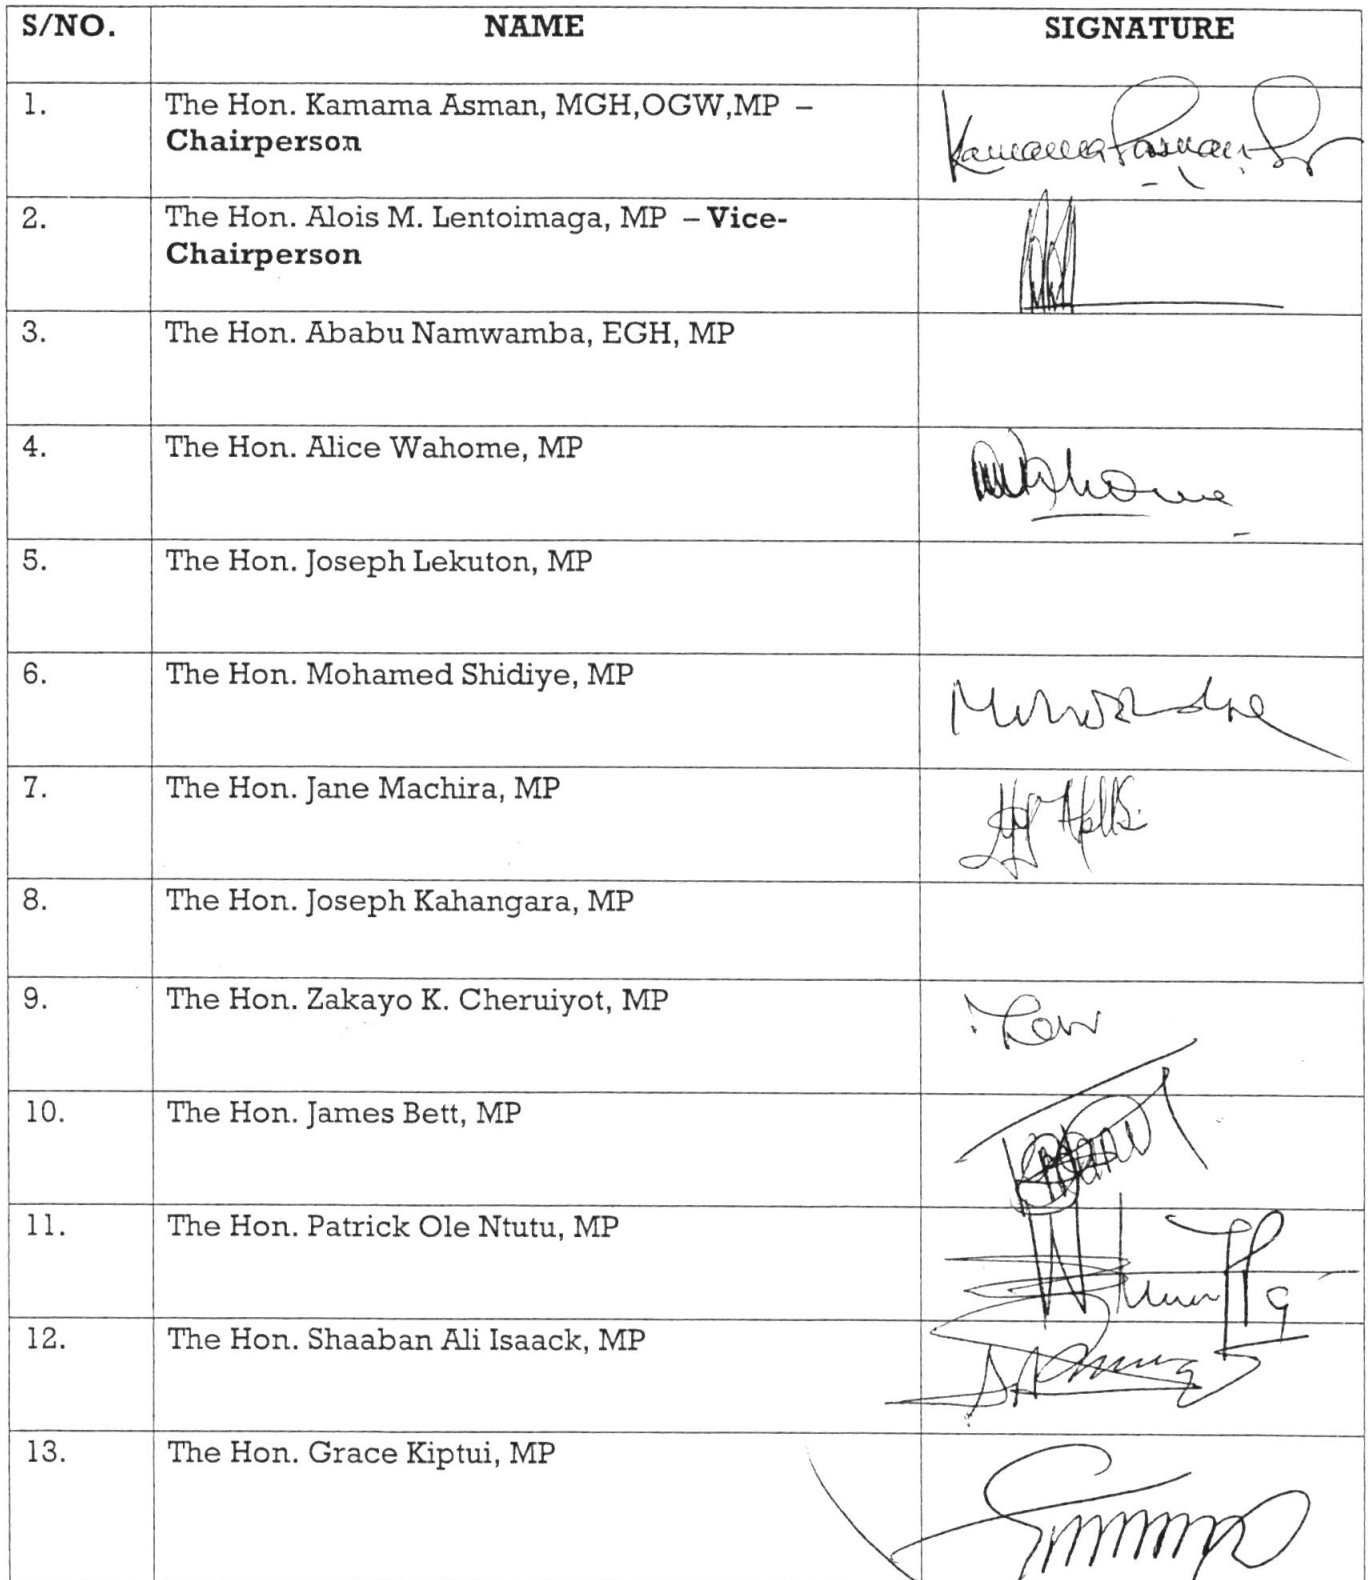 S/NO. NAME SIGNATURE
1. The Hon. Kamama Asman, MGH,OGW,MP –
Chairperson
2. The Hon. Alois M. Lentoimaga, MP – Vice-
Chairperson
3. The Hon. Ababu Namwamba, EGH, MP
4. The Hon. Alice Wahome, MP
5. The Hon. Joseph Lekuton, MP
6. The Hon. Mohamed Shidiye, MP
7. The Hon. Jane Machira, MP
8. The Hon. Joseph Kahangara, MP
9. The Hon. Zakayo K. Cheruiyot, MP
10. The Hon. James Bett, MP
11. The Hon. Patrick Ole Ntutu, MP
12. The Hon. Shaaban Ali Isaack, MP
13. The Hon. Grace Kiptui, MP